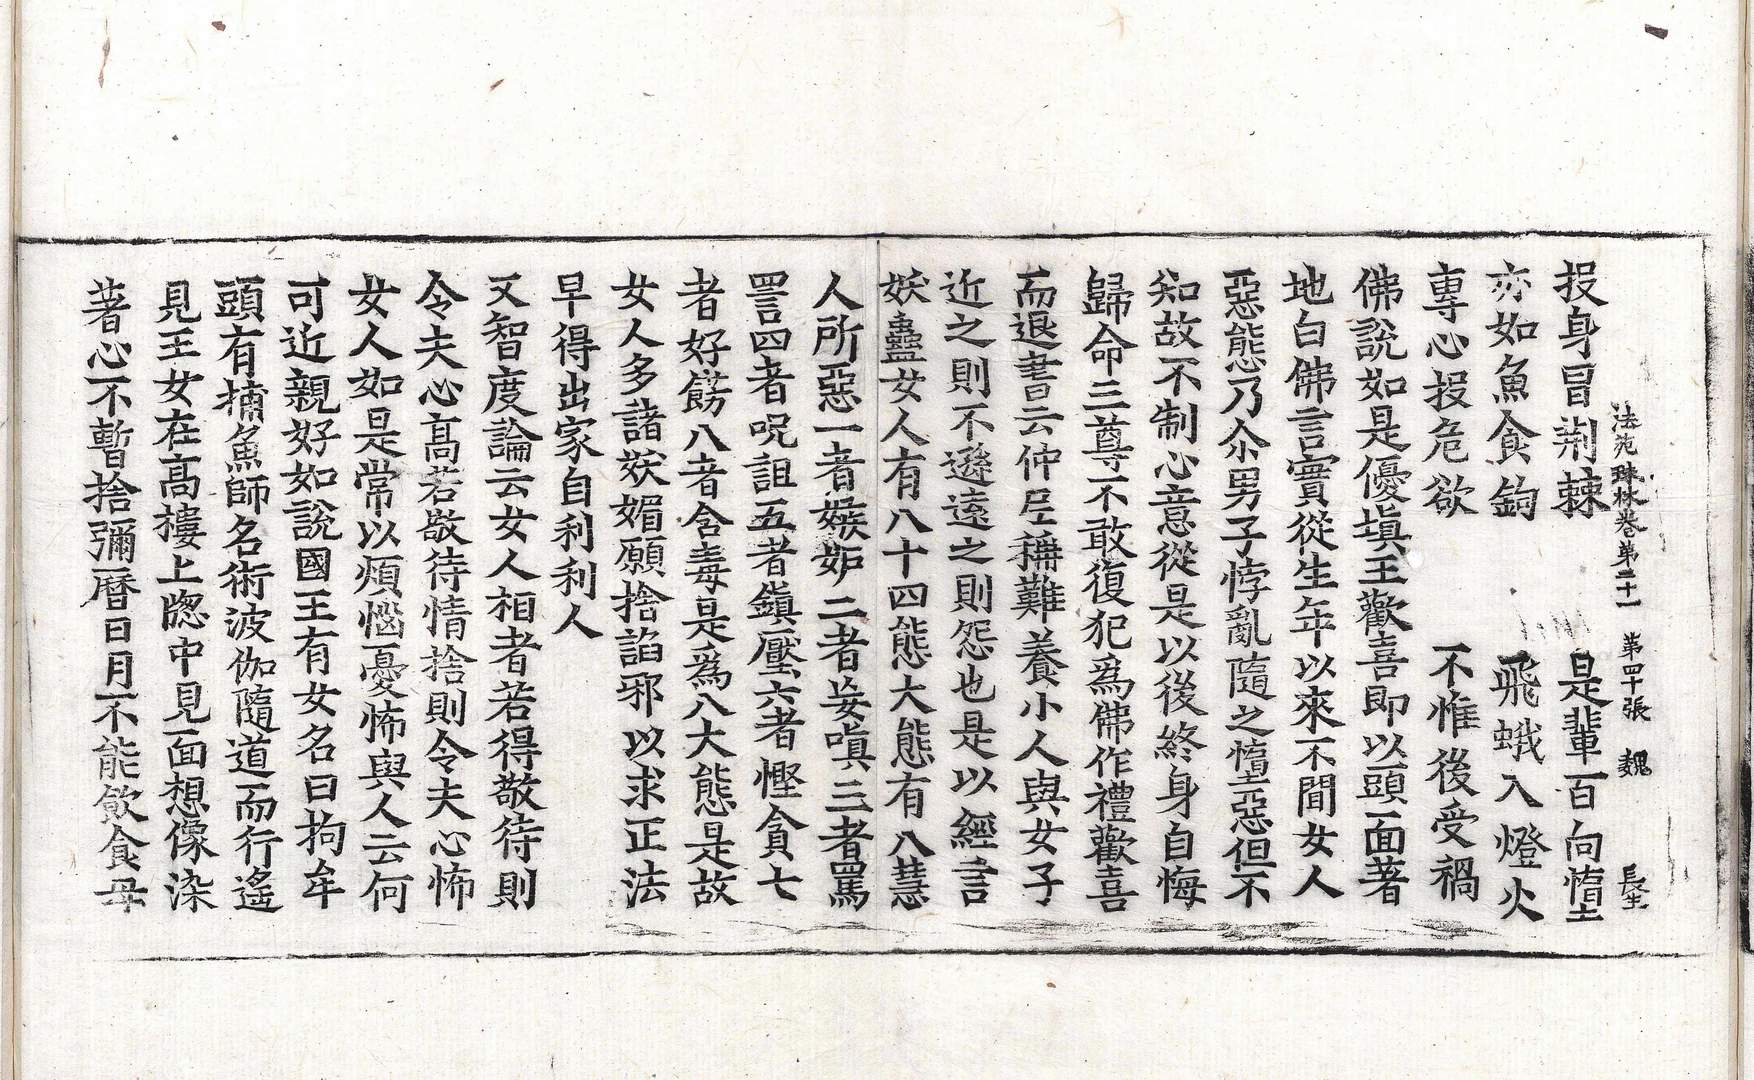 法苑珠林卷第二十一 第四十張 魏 長生
投身冒荆棘 是輩百向憜
亦如魚食鉤 飛蛾入燈火
專心投危欲 不惟後受禍
佛說如是優塡王歡喜即以頭面著
地白佛言實從生年以來不聞女人
惡態乃尒男子悖亂隨之憜惡但不
知故不制心意從是以後終身自悔
歸命三尊不敢復犯爲佛作禮歡喜
而退書云仲尼稱難養小人與女子
近之則不遜遠之則怨也是以經言
妖蠱女人有八十四態大態有八慧
人所惡一者嫉妬二者妄嗔三者罵
詈四者呪詛五者鎭壓六者慳貪七
者好餝八者含毒是爲八大態是故
女人多諸妖媚願捨諂邪以求正法
早得出家自利利人
又智度論云女人相者若得敬待則
令夫心高若敬待情捨則令夫心怖
女人如是常以煩惱憂怖與人云何
可近親好如說國王有女名曰拘牟
頭有捕魚師名術波伽隨道而行遙
見王女在高樓上牕中見面想像染
著心不暫捨彌曆日月不能飲食母